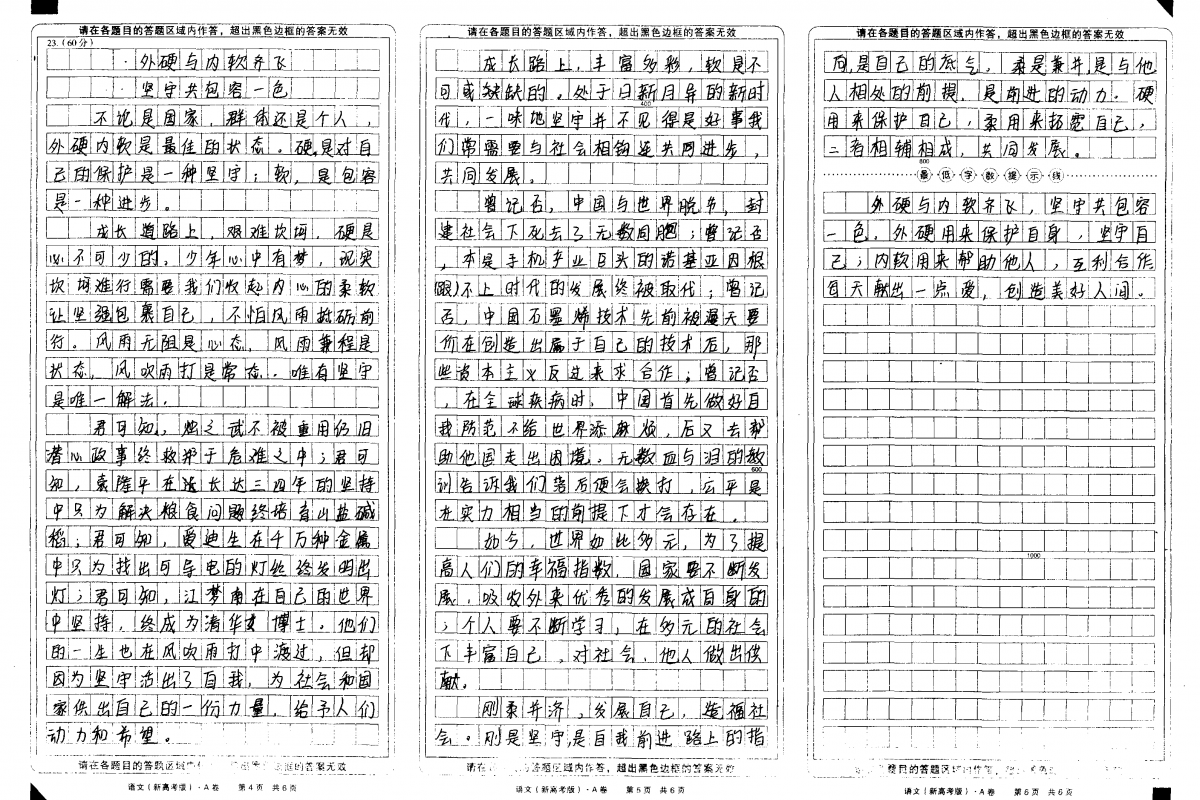 请在各题目的答题区域内作答，超出黑色边框的答案无效
23.（60分）
外硬与内软齐飞
坚守共包容一色
不论是国家，群体还是个人，
外硬内软是最佳的状态。硬，是对自
己的保护是一种坚守；软，是包容
是一种进步。
成长道路上，艰难坎坷，硬是
必不可少的。少年心中有梦，现实
坎坷难行需要我们收起内心的柔软
让坚强包裹自己，不怕风雨砥砺前
行。风雨无阻是心态，风雨兼程是
状态，风吹雨打是常态。唯有坚守
是唯一解法。
君可知，烛之武不被重用仍旧
潜心政事终救郑于危难之中；君可
知，袁隆平在长达三四年的坚持
中只为解决粮食问题终培育出盐碱
稻；君可知，爱迪生在千万种金属
中只为找出可导电的灯丝终发明出
灯；君可知，江梦南在自己的世界
中坚持，终成为清华博士。他们
的一生也在风吹雨打中渡过，但却
因为坚守活出了自我，为社会和国
家供出自己的一份力量，给予人们
动力和希望。
请在各题目的答题区域内作答，超出黑色边框的答案无效
语文（新高考版）·A卷 第4页 共6页
请在各题目的答题区域内作答，超出黑色边框的答案无效
成长路上，丰富多彩，软是不
可或缺的。处于日新月异的新时
400
代，一味地坚守并不见得是好事我
们常需要与社会相钩连共同进步，
共同发展。
曾记否，中国与世界脱节，封
建社会下死去了无数同胞；曾记否
，本是手机产业巨头的诺基亚因根
跟不上时代的发展终被取代；曾记
否，中国石墨烯技术先前被漫天要
价在创造出属于自己的技术后，那
些资本主义反过来求合作；曾记否
，在全球疾病时，中国首先做好自
我防范不给世界添麻烦，后又去帮
助他国走出困境。无数血与泪的教
600
训告诉我们落后便会挨打，公平是
在实力相当的前提下才会存在。
如今，世界如此多元，为了提
高人们的幸福指数，国家要不断发
展，吸收外来优秀的发展成自身的
；个人要不断学习，在多元的社会
下丰富自己，对社会，他人做出供
献。
刚柔并济，发展自己，造福社
会。刚是坚守，是自我前进路上的指
请在各题目的答题区域内作答，超出黑色边框的答案无效
语文（新高考版）·A卷 第5页 共6页
请在各题目的答题区域内作答，超出黑色边框的答案无效
向，是自己的底气，柔是兼并，是与他
人相处的前提，是前进的动力。硬
用来保护自己，柔用来拓宽自己，
二者相辅相成，共同发展。
800
最低字数提示线
外硬与内软齐飞，坚守共包容
一色，外硬用来保护自身，坚守自
己；内软用来帮助他人，互利合作
每天献出一点爱，创造美好人间。
1000
语文（新高考版）·A卷 第6页 共6页